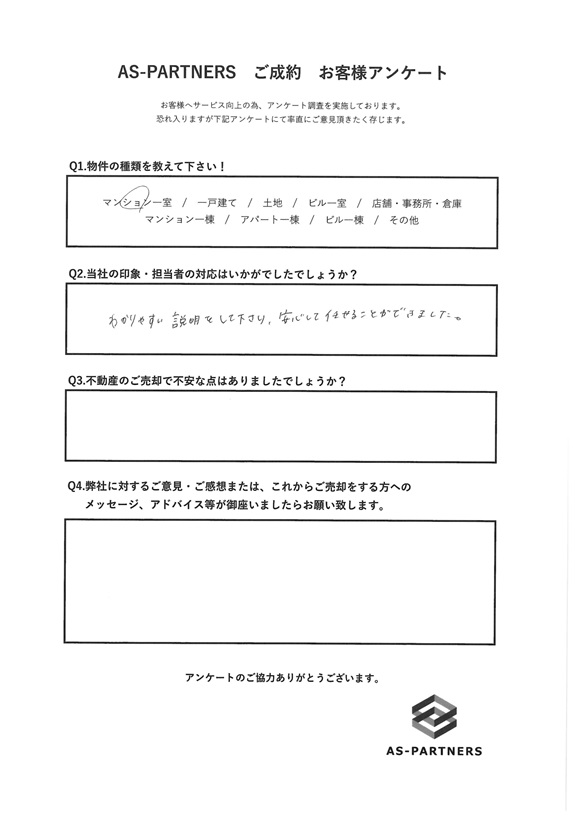 AS-PARTNERS　ご成約　お客様アンケート
お客様へサービス向上の為、アンケート調査を実施しております。
恐れ入りますが下記アンケートにて率直にご意見頂きたく存じます。
Q1.物件の種類を教えて下さい！
マンション一室　/　一戸建て　/　土地　/　ビル一室　/　店舗・事務所・倉庫
マンション一棟　/　アパート一棟　/　ビル一棟　/　その他
Q2.当社の印象・担当者の対応はいかがでしたでしょうか？
わかりやすい説明をして下さり、安心して任せることができました。
Q3.不動産のご売却で不安な点はありましたでしょうか？
Q4.弊社に対するご意見・ご感想または、これからご売却をする方への
メッセージ、アドバイス等が御座いましたらお願い致します。
アンケートのご協力ありがとうございます。
AS-PARTNERS